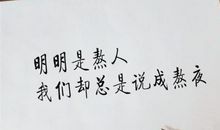 明明是熬人
我们却总是说成熬夜